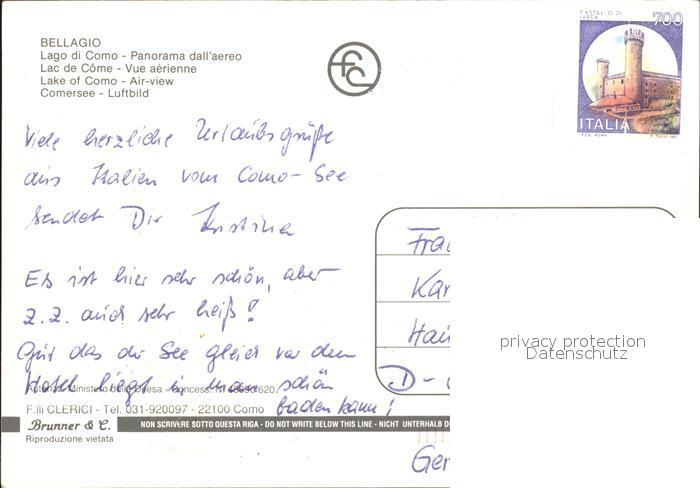 BELLAGIO
Lago di Como - Panorama dall'aereo
Lac de Côme - Vue aérienne
Lake of Como - Air-view
Comersee - Luftbild
fc
CASTELLO DI
IVREA
700
ITALIA
I.P.Z.S. ROMA
Viele herzliche Urlaubsgrüße
aus Italien vom Como-See
sendet Dir Kristina
Es ist hier sehr schön, aber
z.Z. auch sehr heiß!
Gut das der See gleich vor dem
Hotel liegt u. man schön
baden kann!
Frau
Kar
D-
Ger
privacy protection
Datenschutz
Autorizz. Ministero della Difesa - Concess. N.
F.lli CLERICI - Tel. 031-920097 - 22100 Como
Brunner & C.
NON SCRIVERE SOTTO QUESTA RIGA - DO NOT WRITE BELOW THIS LINE - NICHT UNTERHALB D
Riproduzione vietata